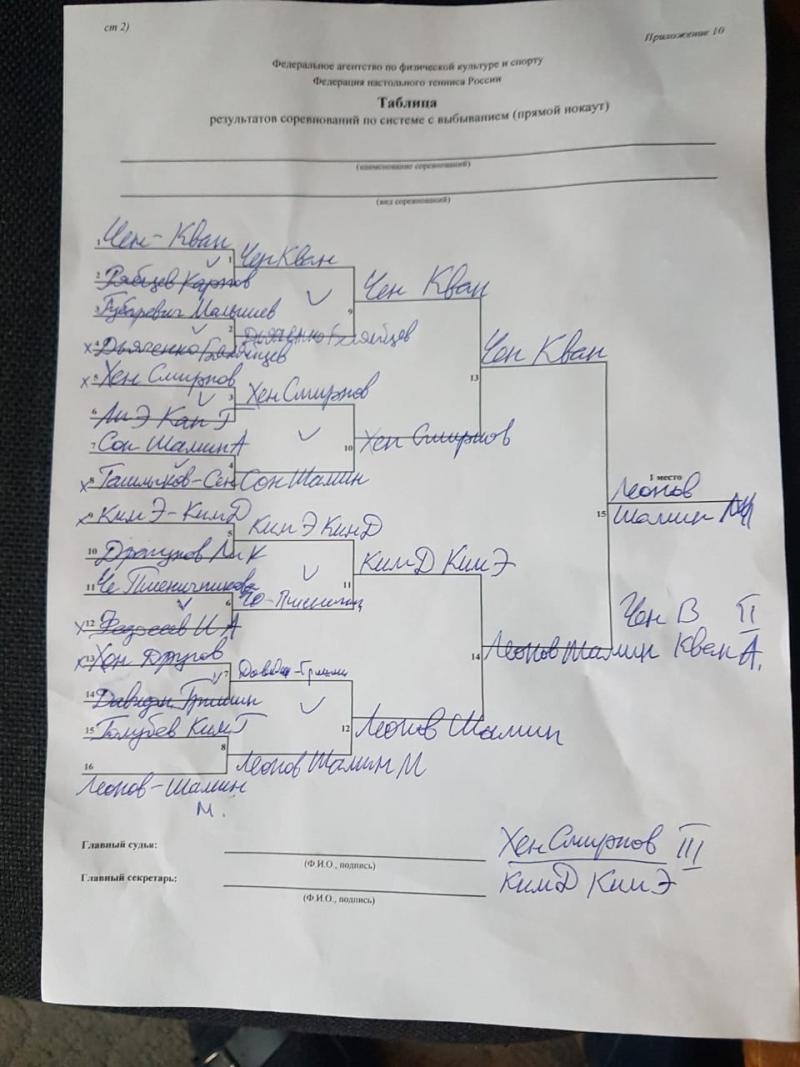 ст 2)
Приложение 10
Федеральное агентство по физической культуре и спорту
Федерация настольного тенниса России
Таблица
результатов соревнований по системе с выбыванием (прямой нокаут)
(наименование соревнований)
(вид соревнований)
1 Чен - Кван
1 Чен Кван
2 Рябцев Карпов
9 Чен Кван
3 Губаревич Малышев
2
х 4 Дьяченко
Дьяченко
13 Чен Кван
х 5 Хен Смирнов
3 Хен Смирнов
6 Ли Э Кан Г
10 Хен Смирнов
7 Сон Шамин А
4 Сон Шамин
х 8 Ташлыков-Сен
1 место
15 Леонов
Шамин М
х 9 Ким Э - Ким Д
5 Ким Э Ким Д
10 Драгунов Ли К
11 Ким Д Ким Э
11 Че Пшеничников
6
х 12 И А
Чен В II
Кван А.
14 Леонов Шамин
х 13 Хон Другов
7
14 Давидян Гришин
12 Леонов Шамин
15 Голубев Ким Г
8 Леонов Шамин М
16
Леонов - Шамин
М.
Главный судья:
(Ф.И.О., подпись)
Хен Смирнов III
Главный секретарь:
(Ф.И.О., подпись)
Ким Д Ким Э